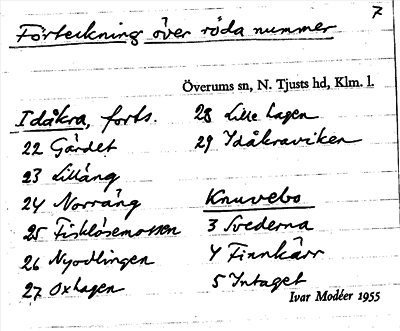 7
Förteckning över röda nummer
Överums sn, N. Tjusts hd, Klm. l.
Idåkra, forts.
22 Gärdet
23 Lilläng
24 Norräng
25 Fisklösemossen
26 Nyodlingen
27 Oxhagen
28 Lille hagen
29 Idåkraviken
Knuvebo
3 Svederna
4 Finnkärr
5 Intaget
Ivar Modéer 1955